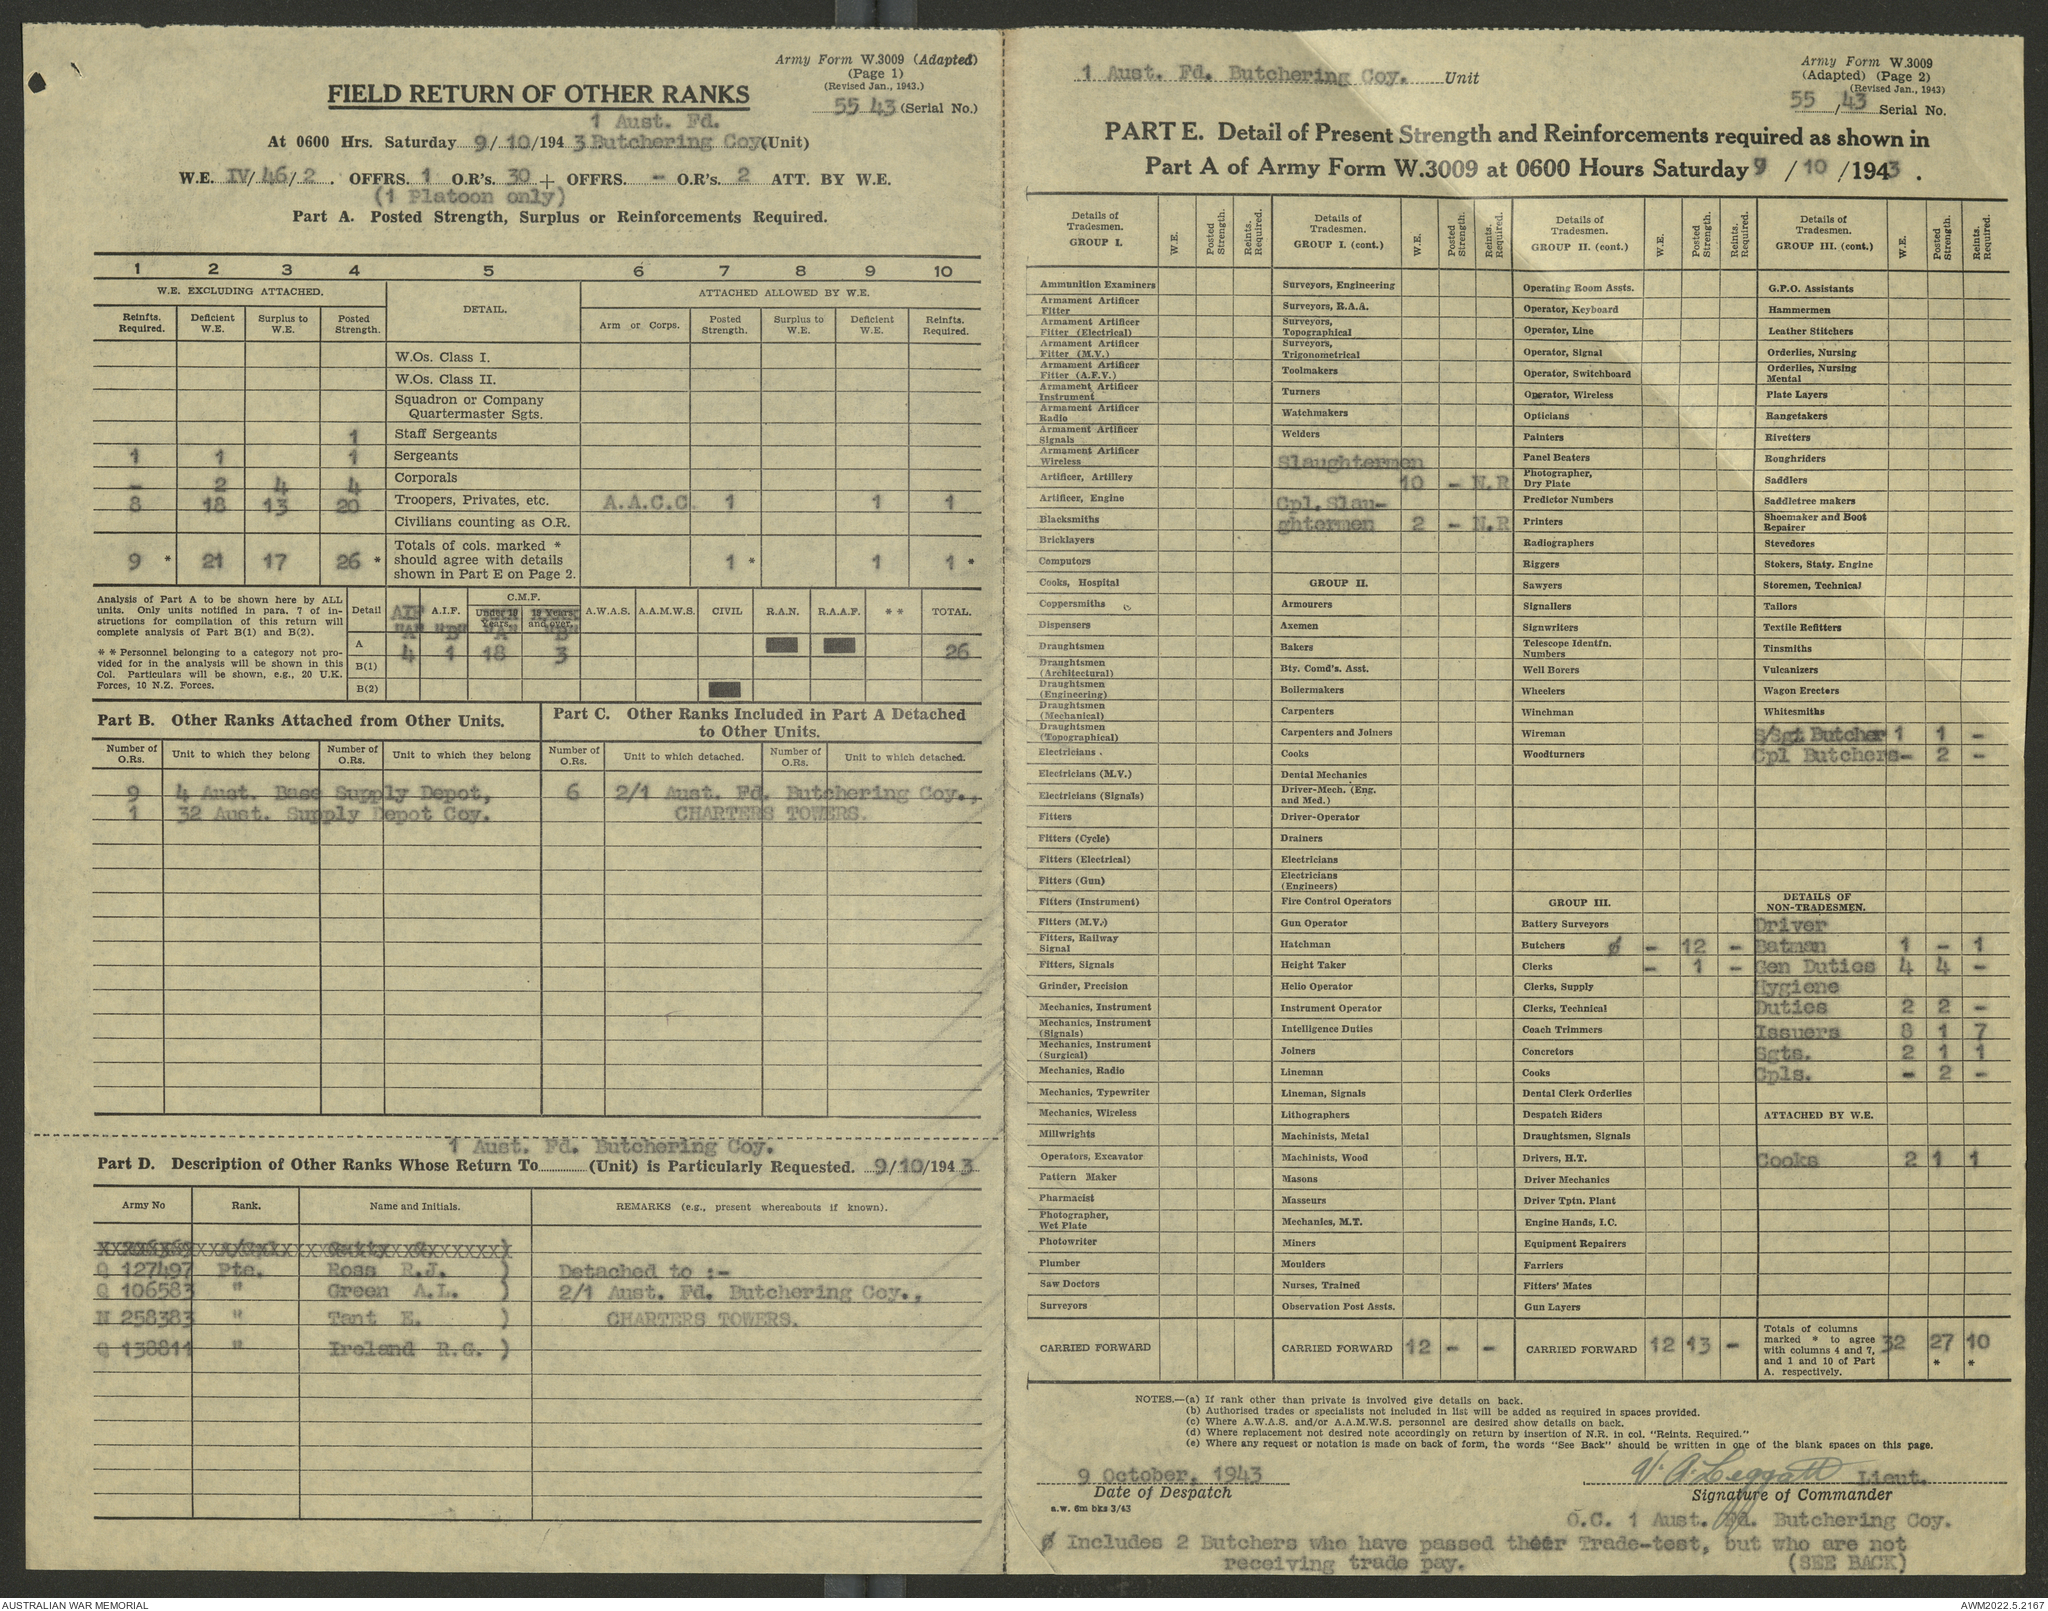 Army Form W.3009 (Adapted)
(Page 1)
(Revised Jan., 1943.)
55 43 (Serial No.)
FIELD RETURN OF OTHER RANKS
1 Aust. Fd.
At 0600 Hrs. Saturday 9/ 10 /194 3 Butchering Coy.(Unit)
W.E. IV/ 46/ 2 . OFFRS. 1 O.R's. 30 + OFFRS. - O.R's. 2 ATT. BY W.E.
(1 Platoon only)
Part A. Posted Strength, Surplus or Reinforcements Required.
1 2 3 4 5 6 7 8 9 10
W.E. EXCLUDING ATTACHED. DETAIL. ATTACHED ALLOWED BY W.E.
Reinfts. Required. Deficient W.E. Surplus to W.E. Posted Strength. Arm or Corps. Posted Strength. Surplus to W.E. Deficient W.E. Reinfts. Required.
W.Os. Class I.
W.Os. Class II.
Squadron or Company
Quartermaster Sgts.
1 Staff Sergeants
1 1 1 Sergeants
- 2 4 4 Corporals
8 18 13 20 Troopers, Privates, etc. A.A.C.C. 1 1 1
Civilians counting as O.R.
9 * 21 17 26 * Totals of cols. marked * should agree with details shown in Part E on Page 2. 1 * 1 1 *
Analysis of Part A to be shown here by ALL
units. Only units notified in para. 7 of in-
structions for compilation of this return will
complete analysis of Part B(1) and B(2).
* * Personnel belonging to a category not pro-
vided for in the analysis will be shown in this
Col. Particulars will be shown, e.g., 20 U.K.
Forces, 10 N.Z. Forces.
Detail A.I.F. C.M.F. Under 19 Years. 19 Years. and over. A.W.A.S. A.A.M.W.S. CIVIL R.A.N. R.A.A.F. * * TOTAL.
A 4 1 18 3 26
B(1)
B(2)
Part B. Other Ranks Attached from Other Units.
Part C. Other Ranks Included in Part A Detached
to Other Units.
Number of O.Rs. Unit to which they belong Number of O.Rs. Unit to which they belong Number of O.Rs. Unit to which detached. Number of O.Rs. Unit to which detached.
9 4 Aust. Base Supply Depot, 6 2/1 Aust. Fd. Butchering Coy.,
1 32 Aust. Supply Depot Coy. CHARTERS TOWERS.
1 Aust. Fd. Butchering Coy.
Part D. Description of Other Ranks Whose Return To (Unit) is Particularly Requested. 9/10/194 3
Army No Rank. Name and Initials. REMARKS (e.g., present whereabouts if known).
Q 127497 Pte. Ross R.J. ) Detached to :-
Q 106583 " Green A.L. ) 2/1 Aust. Fd. Butchering Coy.,
N 258383 " Tant E. ) CHARTERS TOWERS.
Q 138811 " Ireland R.G. )
1 Aust. Fd. Butchering Coy. Unit
Army Form W.3009
(Adapted) (Page 2)
(Revised Jan., 1943)
55 /43 Serial No.
PART E. Detail of Present Strength and Reinforcements required as shown in
Part A of Army Form W.3009 at 0600 Hours Saturday 9 / 10 /1943 .
Details of Tradesmen. GROUP I. W.E. Posted Strength. Reints. Required.
Ammunition Examiners
Armament Artificer Fitter
Armament Artificer Fitter (Electrical)
Armament Artificer Fitter (M.V.)
Armament Artificer Fitter (A.F.V.)
Armament Artificer Instrument
Armament Artificer Radio
Armament Artificer Signals
Armament Artificer Wireless
Artificer, Artillery
Artificer, Engine
Blacksmiths
Bricklayers
Computors
Cooks, Hospital
Coppersmiths
Dispensers
Draughtsmen
Draughtsmen (Architectural)
Draughtsmen (Engineering)
Draughtsmen (Mechanical)
Draughtsmen (Topographical)
Electricians
Electricians (M.V.)
Electricians (Signals)
Fitters
Fitters (Cycle)
Fitters (Electrical)
Fitters (Gun)
Fitters (Instrument)
Fitters (M.V.)
Fitters, Railway Signal
Fitters, Signals
Grinder, Precision
Mechanics, Instrument
Mechanics, Instrument (Signals)
Mechanics, Instrument (Surgical)
Mechanics, Radio
Mechanics, Typewriter
Mechanics, Wireless
Millwrights
Operators, Excavator
Pattern Maker
Pharmacist
Photographer, Wet Plate
Photowriter
Plumber
Saw Doctors
Surveyors
CARRIED FORWARD
Details of Tradesmen. GROUP I. (cont.) W.E. Posted Strength. Reints. Required.
Surveyors, Engineering
Surveyors, R.A.A.
Surveyors, Topographical
Surveyors, Trigonometrical
Toolmakers
Turners
Watchmakers
Welders
Slaughtermen
10 - N.R
Cpl. Slau-
ghtermen 2 - N.R
GROUP II.
Armourers
Axemen
Bakers
Bty. Comd's. Asst.
Boilermakers
Carpenters
Carpenters and Joiners
Cooks
Dental Mechanics
Driver-Mech. (Eng. and Med.)
Driver-Operator
Drainers
Electricians
Electricians (Engineers)
Fire Control Operators
Gun Operator
Hatchman
Height Taker
Helio Operator
Instrument Operator
Intelligence Duties
Joiners
Lineman
Lineman, Signals
Lithographers
Machinists, Metal
Machinists, Wood
Masons
Masseurs
Mechanics, M.T.
Miners
Moulders
Nurses, Trained
Observation Post Assts.
CARRIED FORWARD 12 - -
Details of Tradesmen. GROUP II. (cont.) W.E. Posted Strength. Reints. Required.
Operating Room Assts.
Operator, Keyboard
Operator, Line
Operator, Signal
Operator, Switchboard
Operator, Wireless
Opticians
Painters
Panel Beaters
Photographer, Dry Plate
Predictor Numbers
Printers
Radiographers
Riggers
Sawyers
Signallers
Signwriters
Telescope Identfn. Numbers
Well Borers
Wheelers
Winchman
Wireman
Woodturners
GROUP III.
Battery Surveyors
Butchers ø - 12 -
Clerks - 1 -
Clerks, Supply
Clerks, Technical
Coach Trimmers
Concretors
Cooks
Dental Clerk Orderlies
Despatch Riders
Draughtsmen, Signals
Drivers, H.T.
Driver Mechanics
Driver Tptn. Plant
Engine Hands, I.C.
Equipment Repairers
Farriers
Fitters' Mates
Gun Layers
CARRIED FORWARD 12 13 -
Details of Tradesmen. GROUP III. (cont.) W.E. Posted Strength. Reints. Required.
G.P.O. Assistants
Hammermen
Leather Stitchers
Orderlies, Nursing
Orderlies, Nursing Mental
Plate Layers
Rangetakers
Rivetters
Roughriders
Saddlers
Saddletree makers
Shoemaker and Boot Repairer
Stevedores
Stokers, Staty. Engine
Storemen, Technical
Tailors
Textile Refitters
Tinsmiths
Vulcanizers
Wagon Erectors
Whitesmiths
S/Sgt Butcher 1 1 -
Cpl Butchers- - 2 -
DETAILS OF NON-TRADESMEN.
Driver
Batman 1 - 1
Gen Duties 4 4 -
Hygiene
Duties 2 2 -
Issuers 8 1 7
Sgts. 2 1 1
Cpls. - 2 -
ATTACHED BY W.E.
Cooks 2 1 1
Totals of columns marked * to agree with columns 4 and 7, and 1 and 10 of Part A. respectively. 32 27 * 10 *
NOTES.—(a) If rank other than private is involved give details on back.
(b) Authorised trades or specialists not included in list will be added as required in spaces provided.
(c) Where A.W.A.S. and/or A.A.M.W.S. personnel are desired show details on back.
(d) Where replacement not desired note accordingly on return by insertion of N.R. in col. "Reints. Required."
(e) Where any request or notation is made on back of form, the words "See Back" should be written in one of the blank spaces on this page.
9 October, 1943
Date of Despatch
a.w. 6m bks 3/43
V. A. Leggatt Lieut.
Signature of Commander
O.C. 1 Aust. Fd. Butchering Coy.
ø Includes 2 Butchers who have passed their Trade-test, but who are not
receiving trade pay. (SEE BACK)
AUSTRALIAN WAR MEMORIAL
AWM2022.5.2167